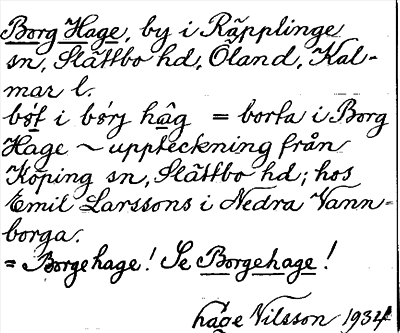 Borg Hage, by i Räpplinge
sn, Slättbo hd, Öland, Kal-
mar l.
bót i bórj hâg = borta i Borg
Hage ~ uppteckning från
Köping sn, Slättbo hd; hos
Emil Larssons i Nedra Vann-
borga.
= Borgehage! Se Borgehage!
håge Nilsson 1934